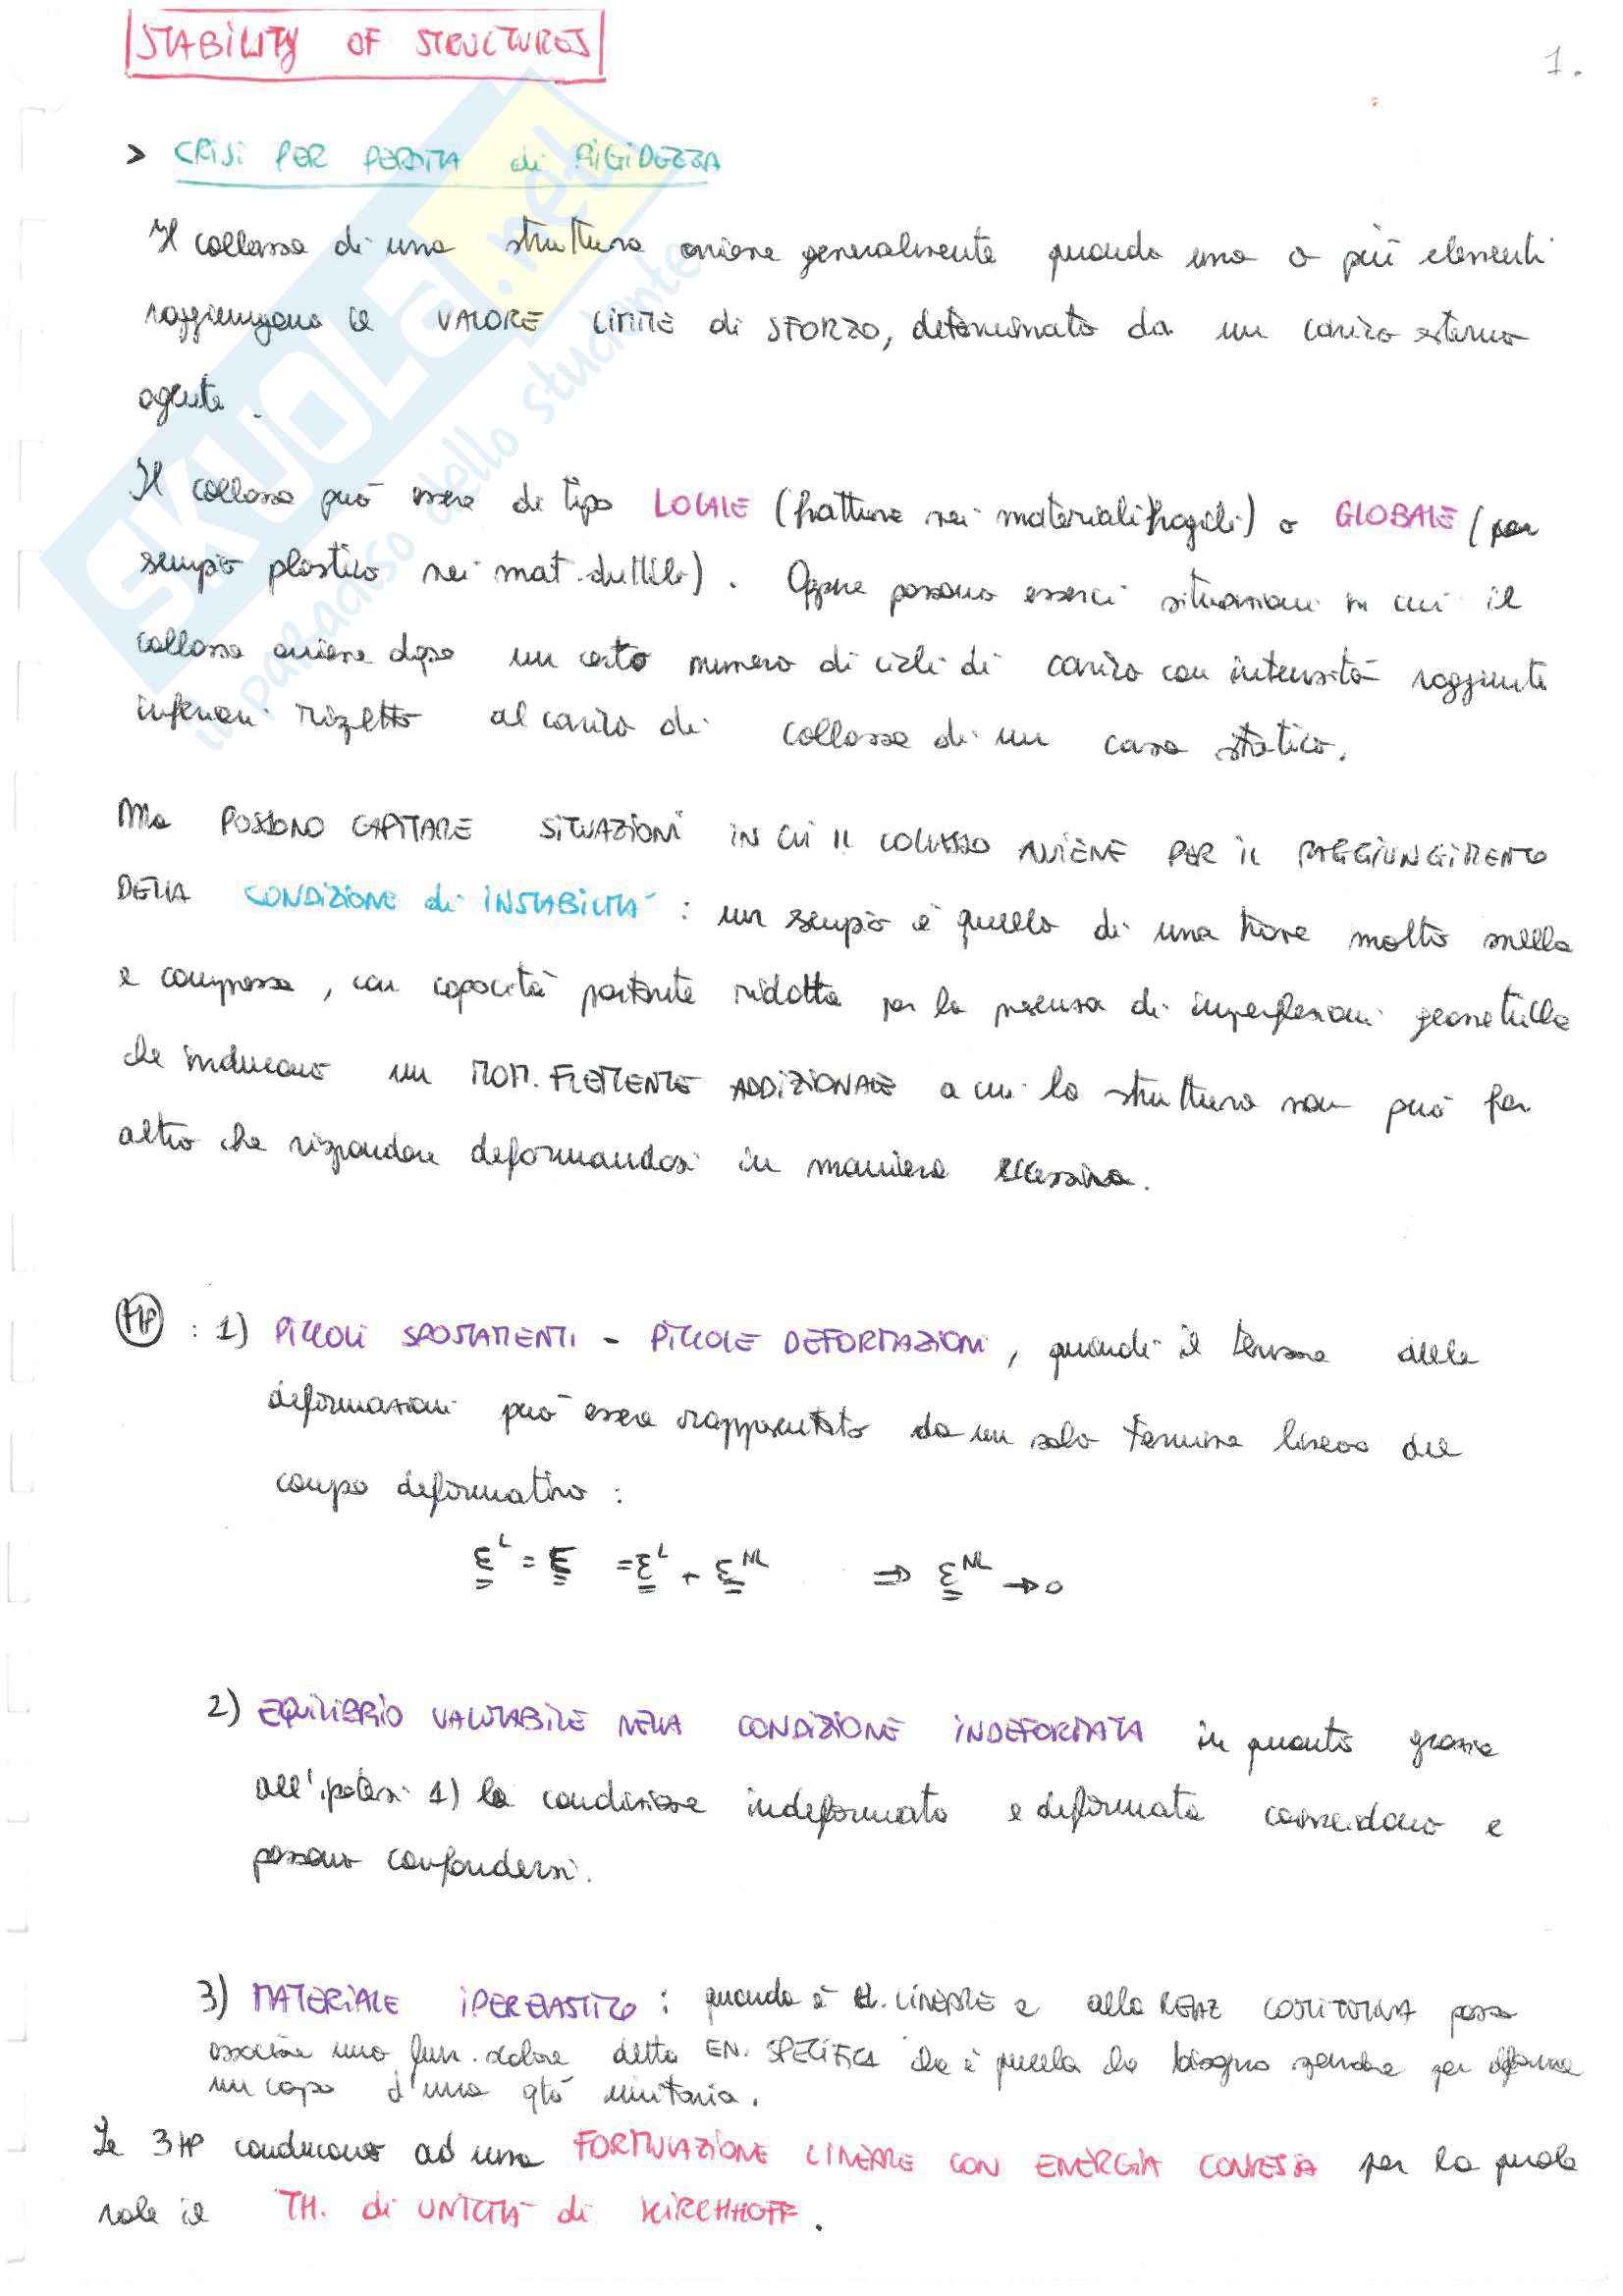 STABILITY OF STRUCTURES
1.
> CRISI PER PERDITA di RIGIDEZZA
Il collasso di una struttura avviene generalmente quando uno o più elementi
raggiungono il VALORE LIMITE di SFORZO, determinato da un carico esterno
agente.
Il collasso può essere di tipo LOCALE (frattura nei materiali fragili) o GLOBALE (per
sempio plastico nei mat. duttili). Oppure possono esserci situazioni in cui il
collasso avviene dopo un certo numero di cicli di carico con intensità raggiunte
inferiori rispetto al carico di collasso di un caso statico.
Ma POSSONO CAPITARE SITUAZIONI IN CUI IL COLLASSO AVVIENE PER IL RAGGIUNGIMENTO
DELLA CONDIZIONE di INSTABILITÀ : un sempio è quello di una trave molto snella
e compressa, con capacità portante ridotta per la presenza di imperfezioni geometriche
che inducono un MOM. FLETTENTE ADDIZIONALE a cui la struttura non può far
altro che rispondere deformandosi in maniera eccessiva.
HP : 1) PICCOLI SPOSTAMENTI - PICCOLE DEFORMAZIONI, quindi il tensore delle
deformazioni può essere rappresentato da un solo termine lineare del
campo deformativo :
ε^L = ε = ε^L + ε^NL ⇒ ε^NL → 0
2) EQUILIBRIO VALUTABILE NELLA CONDIZIONE INDEFORMATA in quanto grazie
all'ipotesi 1) la condizione indeformata e deformata coincidono e
possono confondersi.
3) MATERIALE IPERELASTICO : quando è EL. LINEARE e alla RELAZ COSTITUTIVA posso
associare una fun. scalare detta EN. SPECIFICA che è quella che bisogna spendere per deformare
un corpo d'una qtà unitaria.
Le 3 HP conducono ad una FORMULAZIONE LINEARE CON ENERGIA CONVESSA per la quale
vale il TH. di UNICITÀ di KIRCHHOFF.
SKUOLA.net
il paradiso dello studente